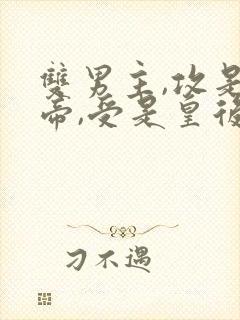 雙男主,攻是
帝,受是皇後
刁不遇